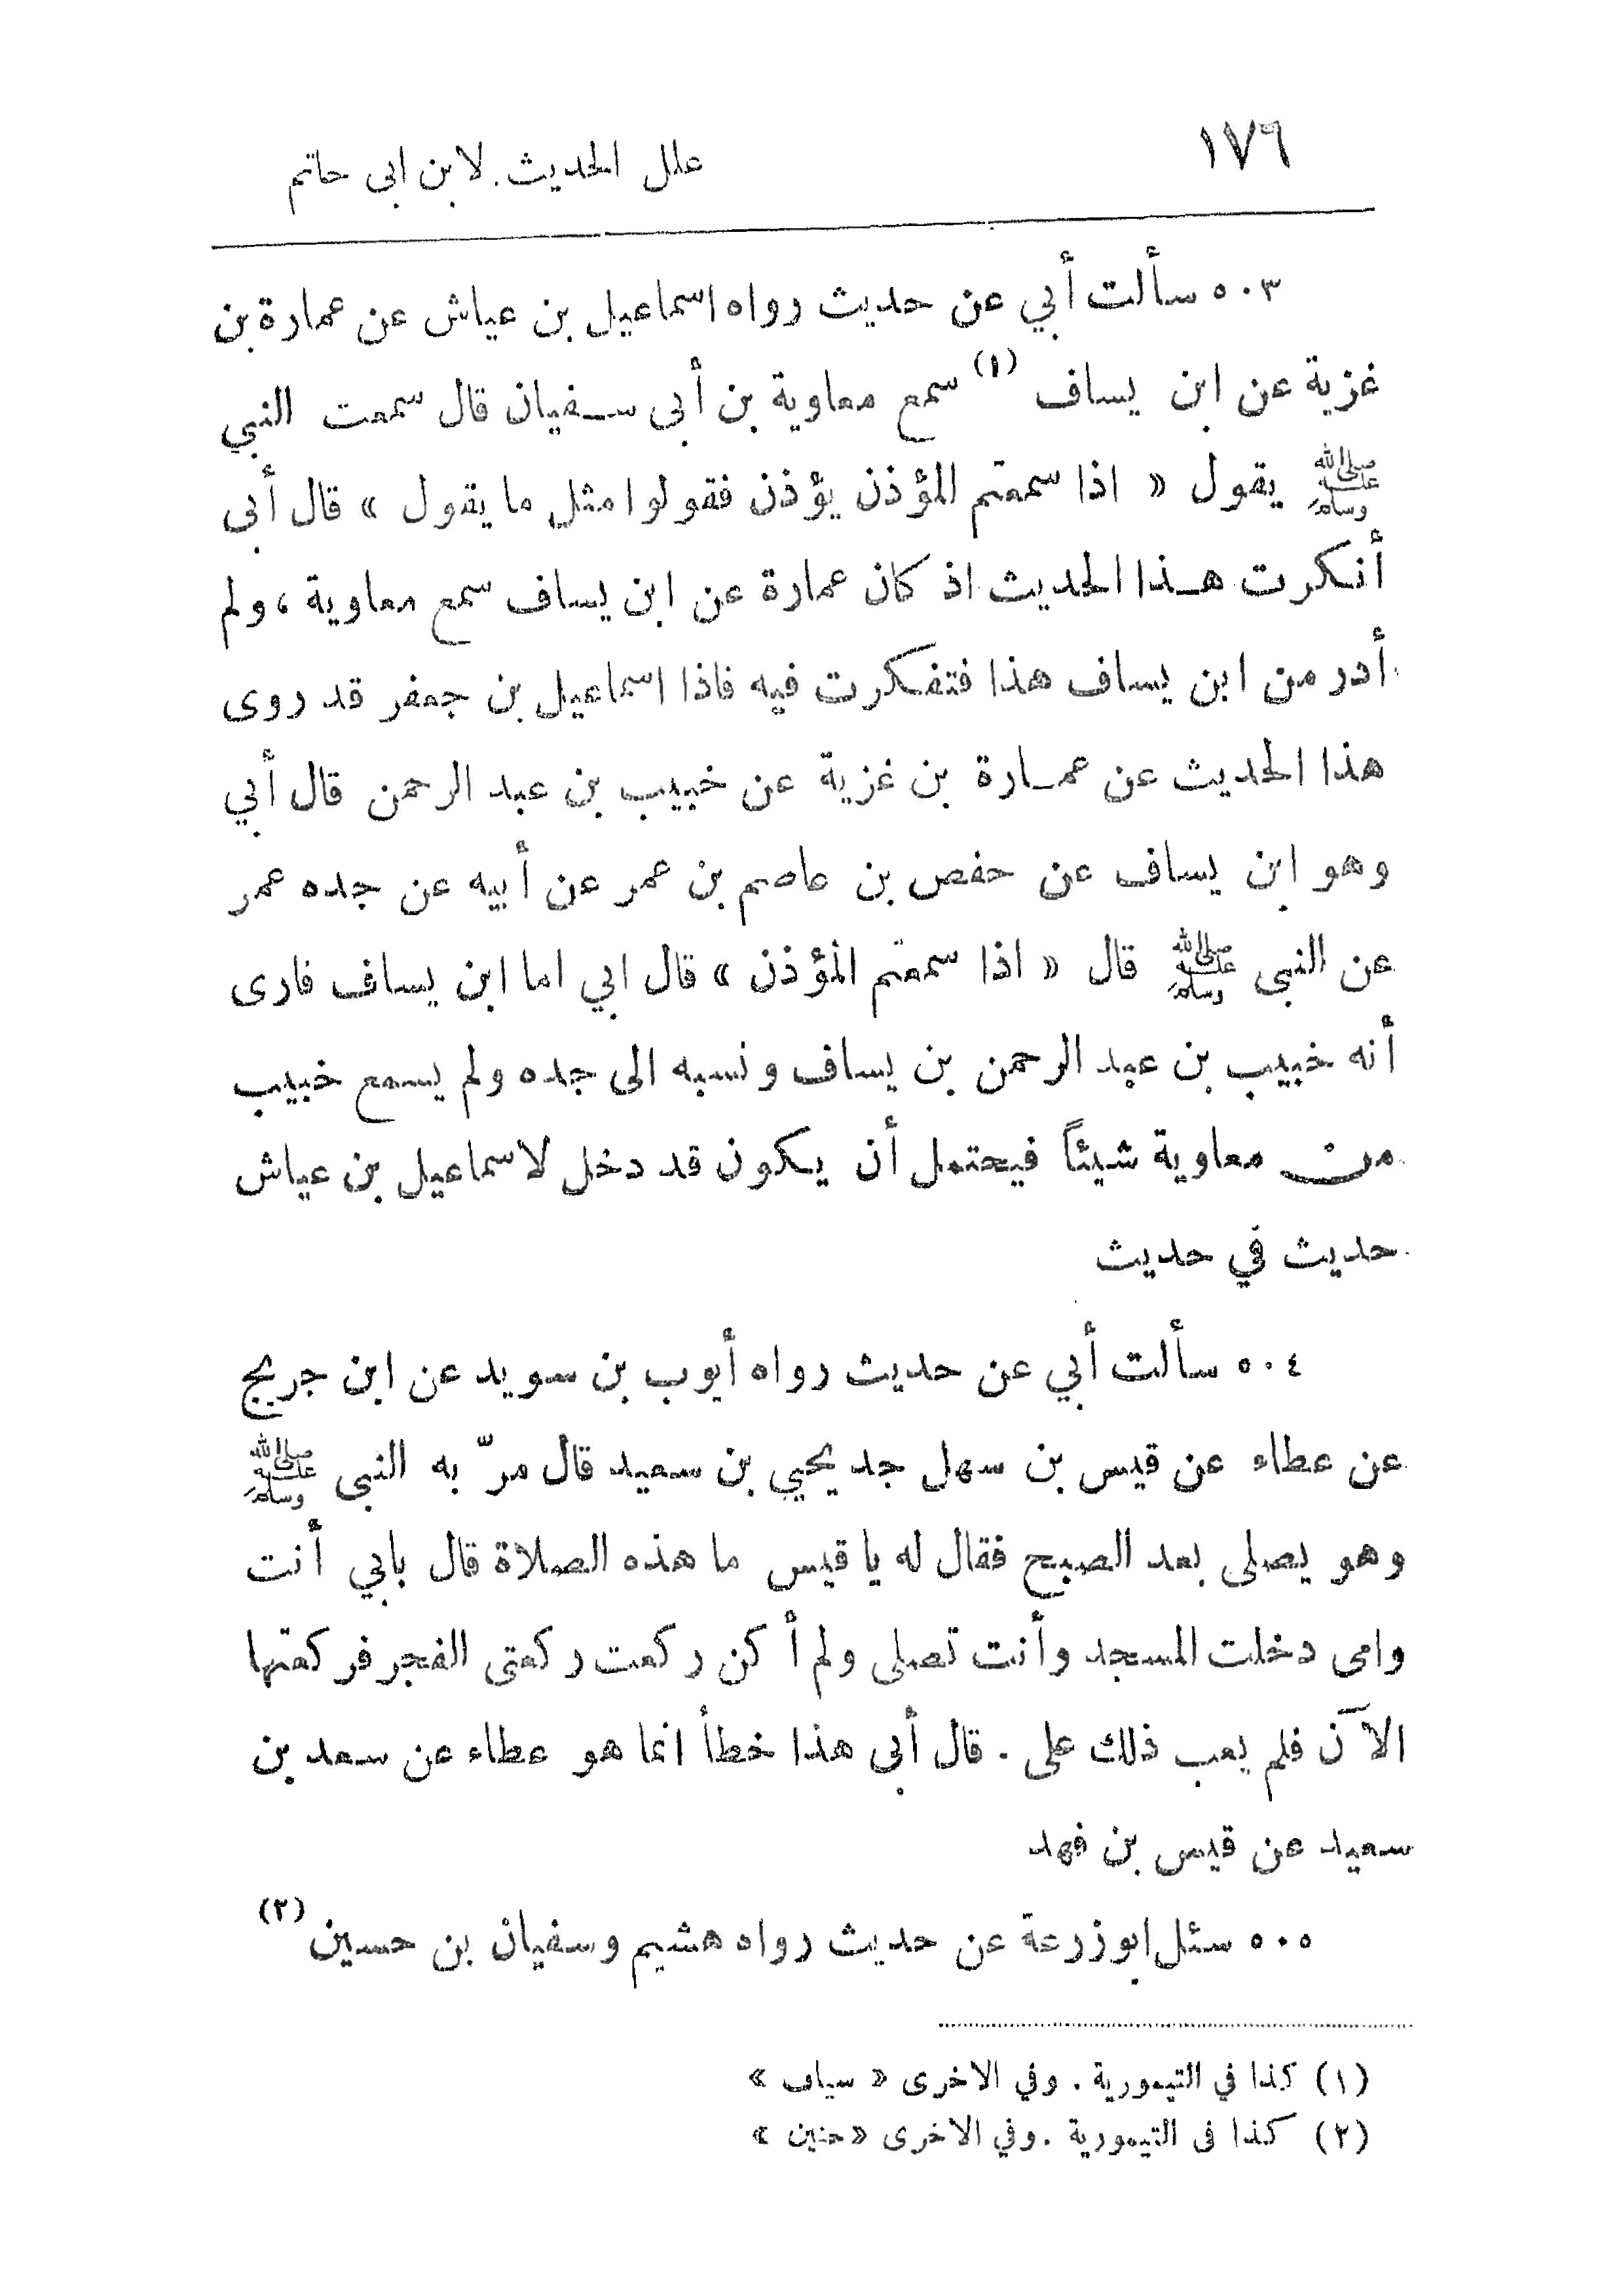 ١٧٦
علل الحديث لابن ابى حاتم
٥٠٣ سألت أبي عن حديث رواه اسماعيل بن عياش عن عمارة بن
غزية عن ابن يساف (١) سمع معاوية بن أبى سفيان قال سمعت النبي
ﷺ يقول « اذا سمعتم المؤذن يؤذن فقولوا مثل ما يقول » قال أبى
أنكرت هذا الحديث اذ كان عمارة عن ابن يساف سمع معاوية ، ولم
أدر من ابن يساف هذا فتفكرت فيه فاذا اسماعيل بن جعفر قد روى
هذا الحديث عن عمارة بن غزية عن خبيب بن عبد الرحمن قال أبي
وهو ابن يساف عن حفص بن عاصم بن عمر عن أبيه عن جده عمر
عن النبى ﷺ قال « اذا سمعتم المؤذن » قال ابي اما ابن يساف فارى
أنه خبيب بن عبد الرحمن بن يساف ونسبه الى جده ولم يسمع خبيب
من معاوية شيئاً فيحتمل أن يكون قد دخل لاسماعيل بن عياش
حديث في حديث
٥٠٤ سألت أبي عن حديث رواه أيوب بن سويد عن ابن جريج
عن عطاء عن قيس بن سهل جد يحيي بن سعيد قال مرّ به النبى ﷺ
وهو يصلى بعد الصبح فقال له يا قيس ما هذه الصلاة قال بابي أنت
وامى دخلت المسجد وأنت تصلى ولم أكن ركعت ركعتى الفجر فركعتها
الآن فلم يعب ذلك على . قال أبى هذا خطأ انما هو عطاء عن سعد بن
سعيد عن قيس بن فهد
٥٠٥ سئل ابو زرعة عن حديث رواه هشيم وسفيان بن حسين (٢)
(١) كذا في التيمورية . وفي الاخرى « سياف »
(٢) كذا فى التيمورية . وفي الاخرى « حنين »